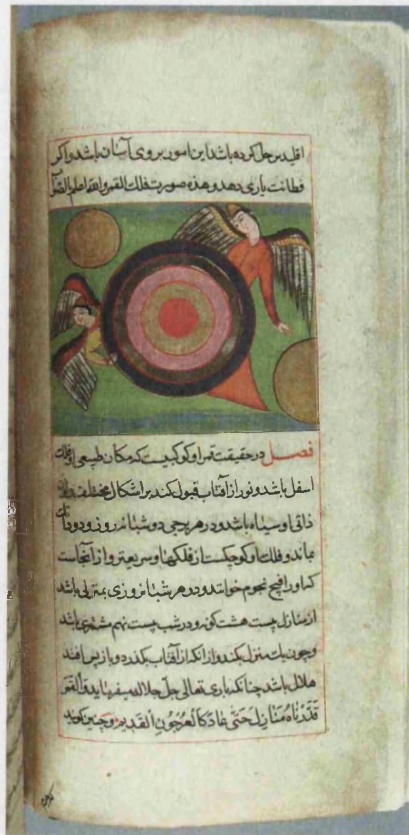 اقلیدس حل کرده باشد این امور بروی آسان باشد و اگر
فطانت یاری دهد و هذه صورت فلک القمر والله اعلم بالصواب
فصل در حقیقت قمر او کوکبیست که مکان طبیعی او فلک
اسفل باشد و نور از آفتاب قبول کند بر اشکال مختلفه و لون
ذاتی او سیاه باشد و در هر برجی دو شبانروز و دو دانک
بماند و فلک او کوچکست از فلکها و سریعترو از آنجاست
که او را فیج نجوم خوانند و در هر شبانروزی بمنزلی باشد
از منازل بیست هشت کونه و در شب بیست نهم مستتر باشد
و چون یک منزل بکند و از آنکه از آفتاب بکذرد و باز پس افتد
هلال باشد چنانکه باری تعالی جل جلاله میفرماید والقمر
قدرناه منازل حتی عاد کالعرجون القدیم و چنین کویند